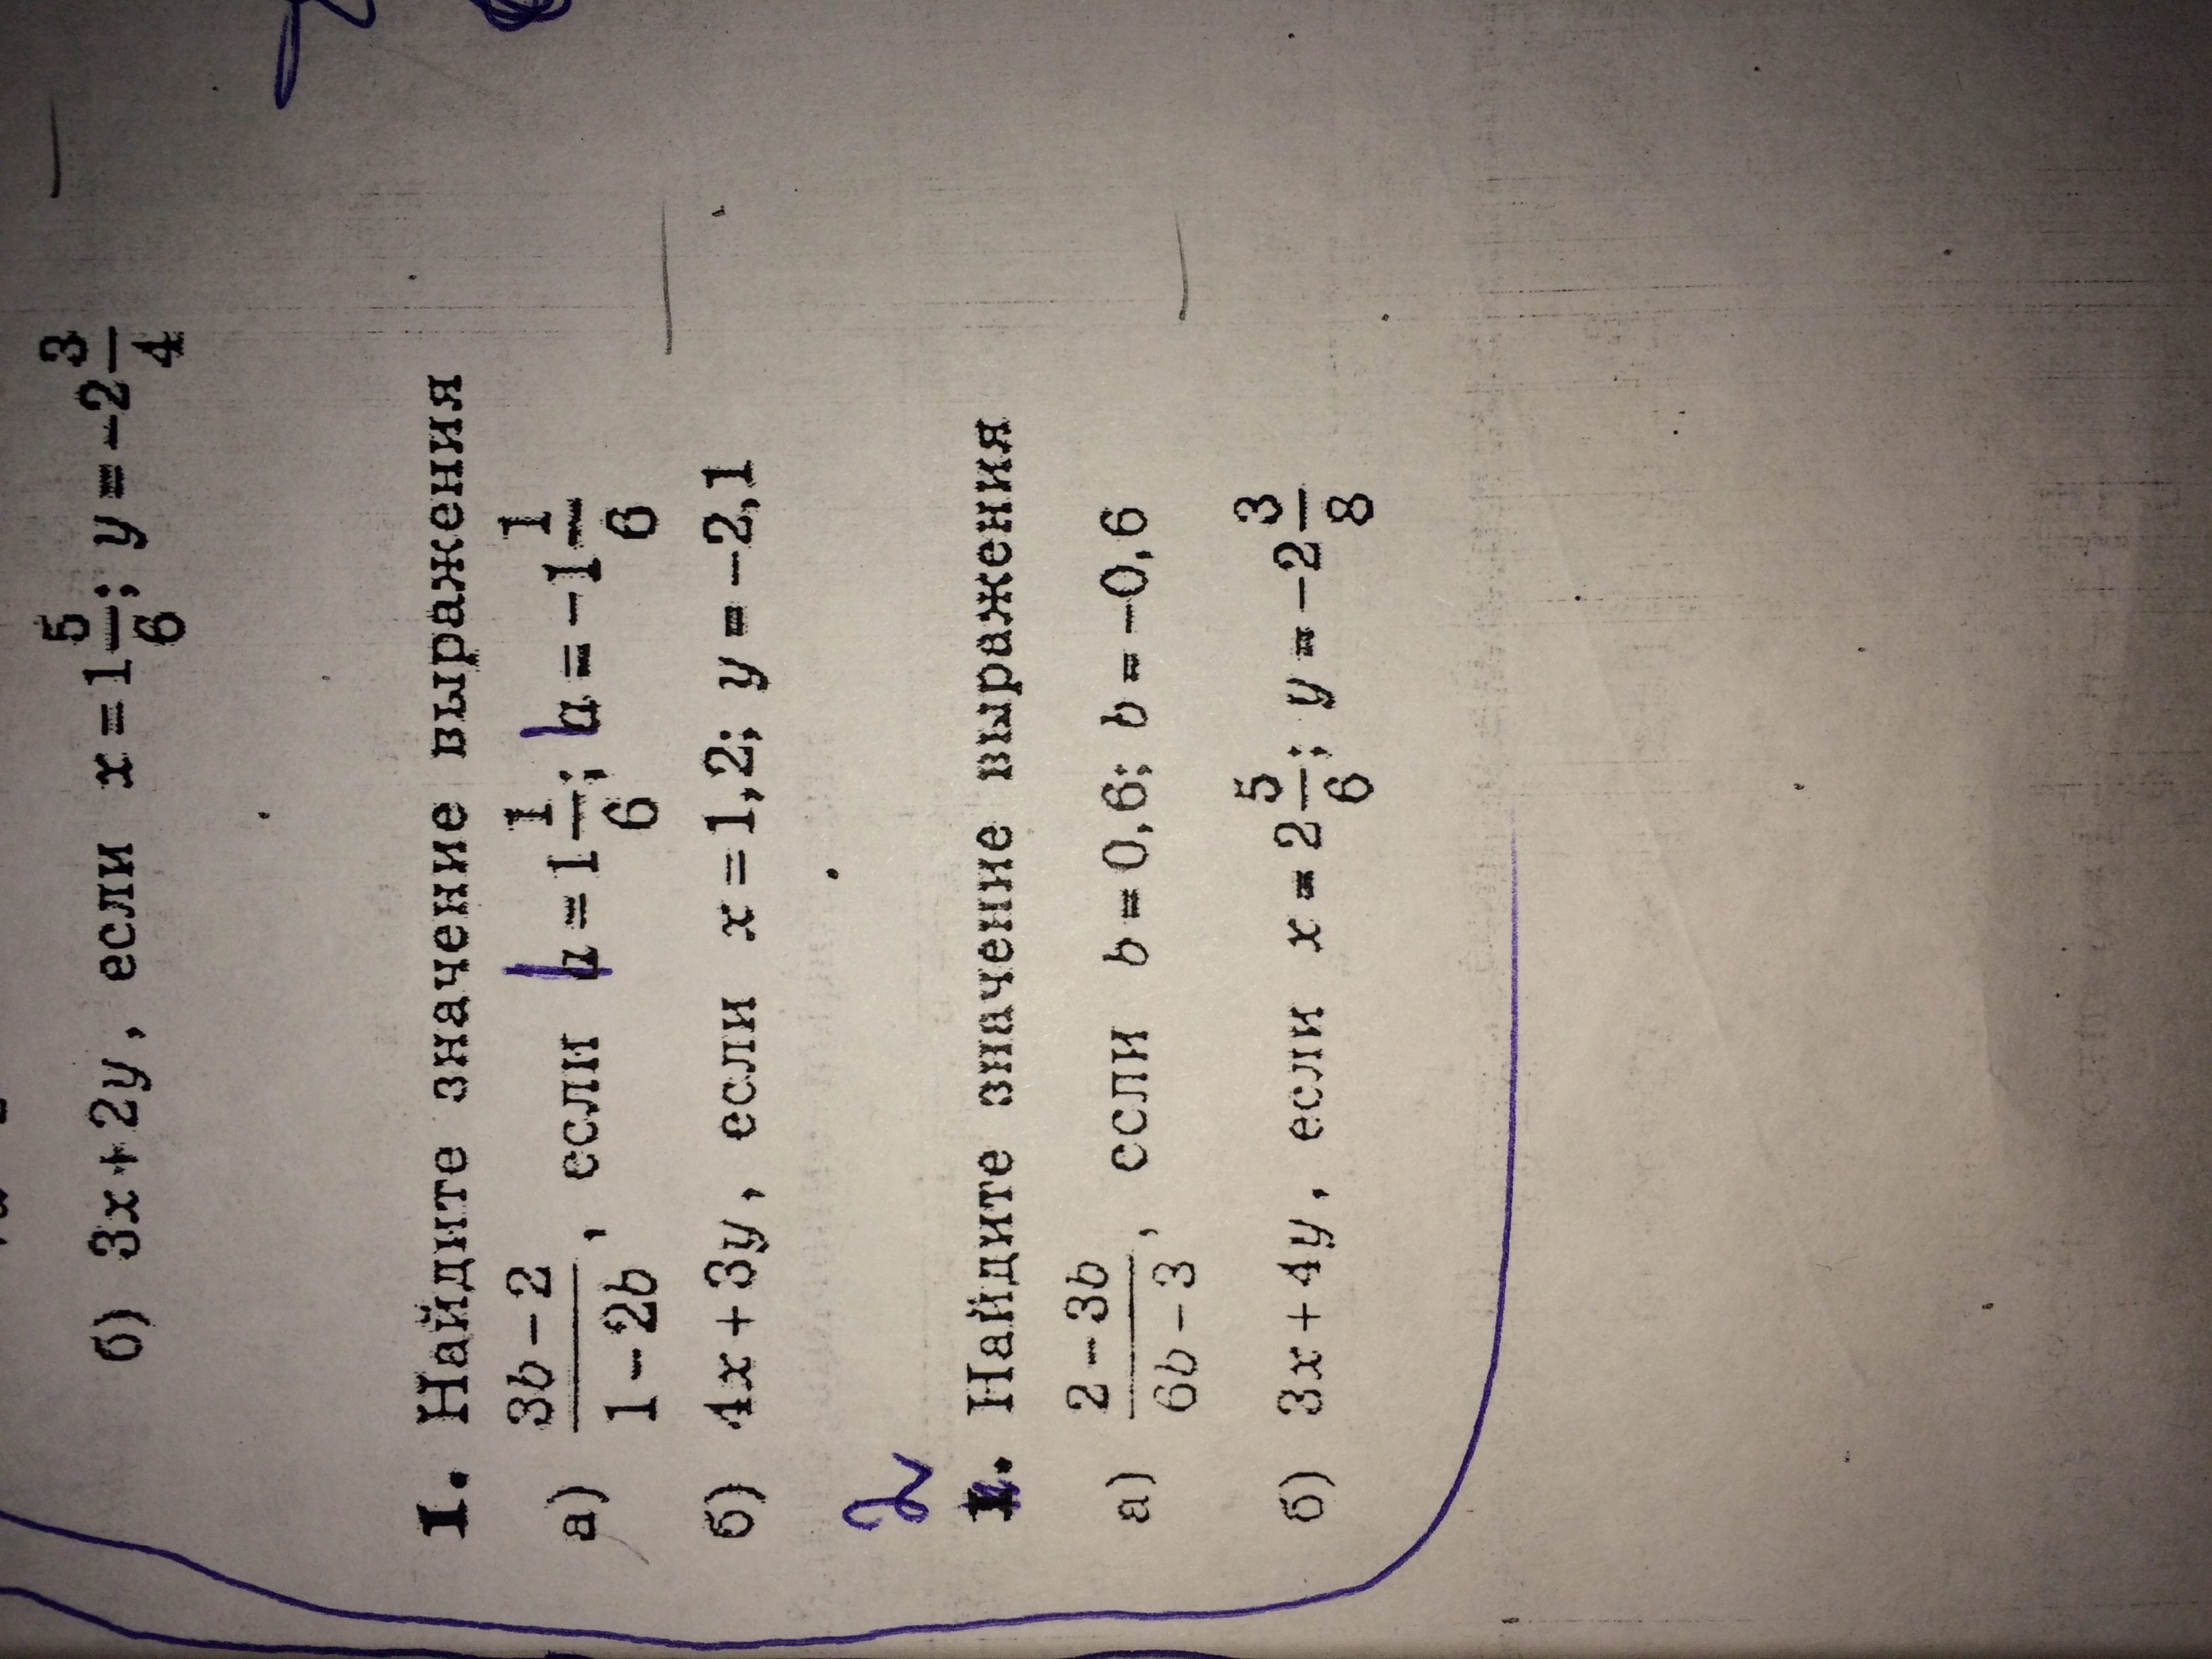 б) 3x+2y, если x=1 5/6; y=-2 3/4
1. Найдите значение выражения
а) (3b-2)/(1-2b), если b=1 1/6; b=-1 1/6
б) 4x+3y, если x=1,2; y=-2,1
2
1. Найдите значение выражения
а) (2-3b)/(6b-3), если b=0,6; b=-0,6
б) 3x+4y, если x=2 5/6; y=-2 3/8